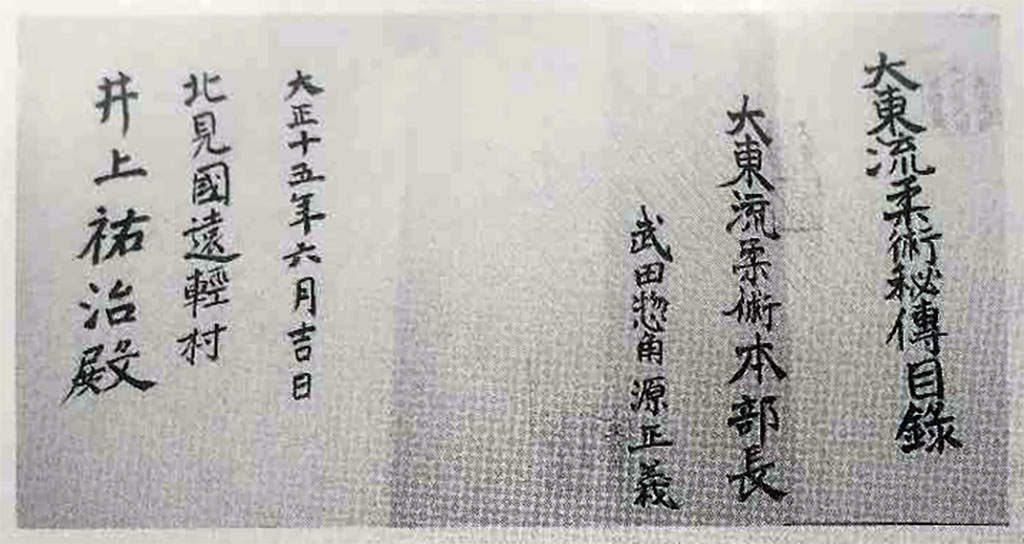 大東流柔術秘傳目錄
大東流柔術本部長
武田惣角源正義
大正十五年六月吉日
北見國遠輕村
井上祐治殿